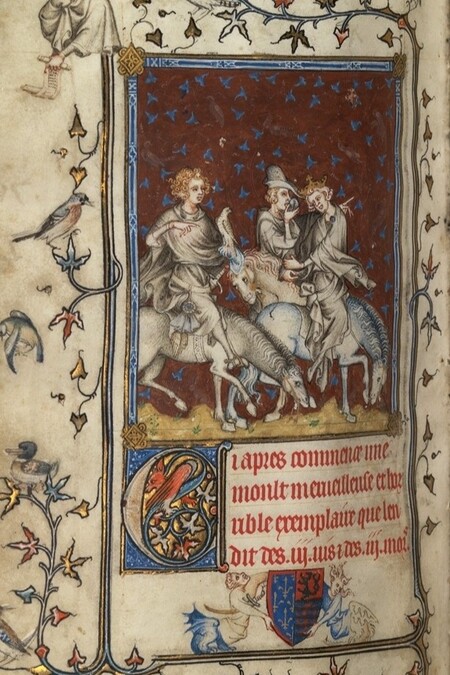 Ci apres commence une
moult merveilleuse et hor
rible exemplaire que len
dit des .iij. vis et des .iij. mors